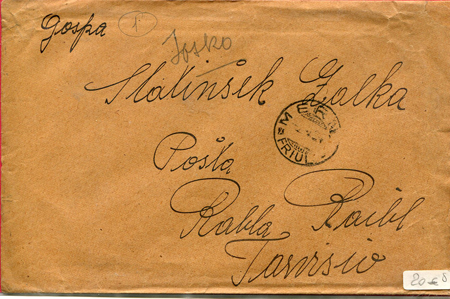 Gospa
1
Josko
Slatinšek Zalka
MERN
FRIU
Pošta
Rabla Raibl
Tarvisio
20 €